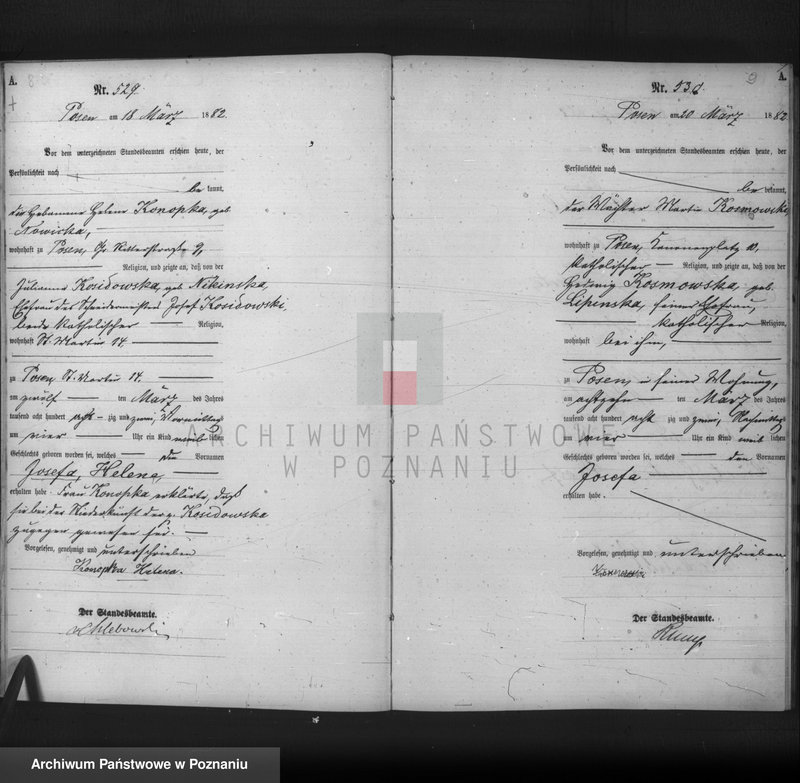 A.
Nr. 529.
Posen am 18 März 1882.
Vor dem unterzeichneten Standesbeamten erschien heute, der
Persönlichkeit nach
be kannt,
die Hebamme Helene Konopka, geb.
Nowicka,
wohnhaft zu Posen, Gr. Ritterstraße 9,
Religion, und zeigte an, daß von der
Julianna Kosidowska, geb. Nikinska,
Ehefrau des Schneidermeisters Josef Kosidowski,
beide katholischer Religion,
wohnhaft St. Martin 14.
zu Posen, St. Martin 14.
am zwölf ten März des Jahres
tausend acht hundert acht zig und zwei, Vormittags
um vier Uhr ein Kind weib lichen
Geschlechts geboren worden sei, welches die Vornamen
Josefa, Helena,
erhalten habe. Frau Konopka erklärte, daß
sie bei der Niederkunft der p. Kosidowska
zugegen gewesen sei.
Vorgelesen, genehmigt und unterschrieben
Konopka Helena.
Der Standesbeamte.
Chlebowski
9
A.
Nr. 530.
Posen am 20 März 1882.
Vor dem unterzeichneten Standesbeamten erschien heute, der
Persönlichkeit nach
be kannt,
der Wächter Martin Kosmowski,
wohnhaft zu Posen, Kanonenplatz
katholischer Religion, und zeigte an, daß von der
Hedwig Kosmowska, geb.
Lipinska, seiner Ehefrau,
katholischer Religion,
wohnhaft bei ihm,
zu Posen, in seiner Wohnung,
am achtzehn ten März des Jahres
tausend acht hundert acht zig und zwei, Nachmittags
um vier Uhr ein Kind weib lichen
Geschlechts geboren worden sei, welches den Vornamen
Josefa
erhalten habe.
Vorgelesen, genehmigt und unterschrieben
Der Standesbeamte.
ARCHIWUM PAŃSTWOWE
W POZNANIU
Archiwum Państwowe w Poznaniu